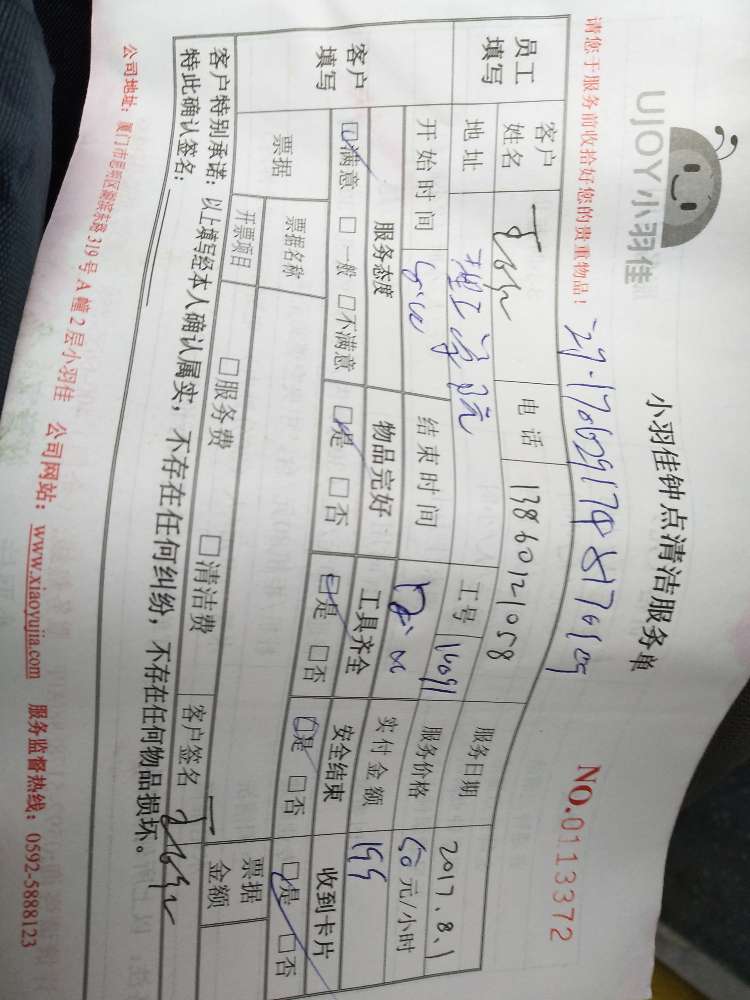 UJOY小羽佳
小羽佳钟点清洁服务单
NO.0113372
请您于服务前收拾好您的贵重物品!
员工填写
客户姓名
电话 13860121058
服务日期 2017.8.1
地址 理工学院
工号
服务价格 50元/小时
开始时间
结束时间
实付金额
客户填写
服务态度 物品完好 工具齐全 安全结束 收到卡片
☑满意 □一般 □不满意 ☑是 □否 ☑是 □否 ☑是 □否 ☑是 □否
票据
票据名称
票据金额
开票项目 □服务费 □清洁费
客户签名
客户特别承诺:以上填写经本人确认属实,不存在任何纠纷,不存在任何物品损坏。
特此确认签名:
公司地址:厦门市思明区 319号A幢2层小羽佳 公司网站:www.xiaoyujia.com 服务监督热线:0592-5888123